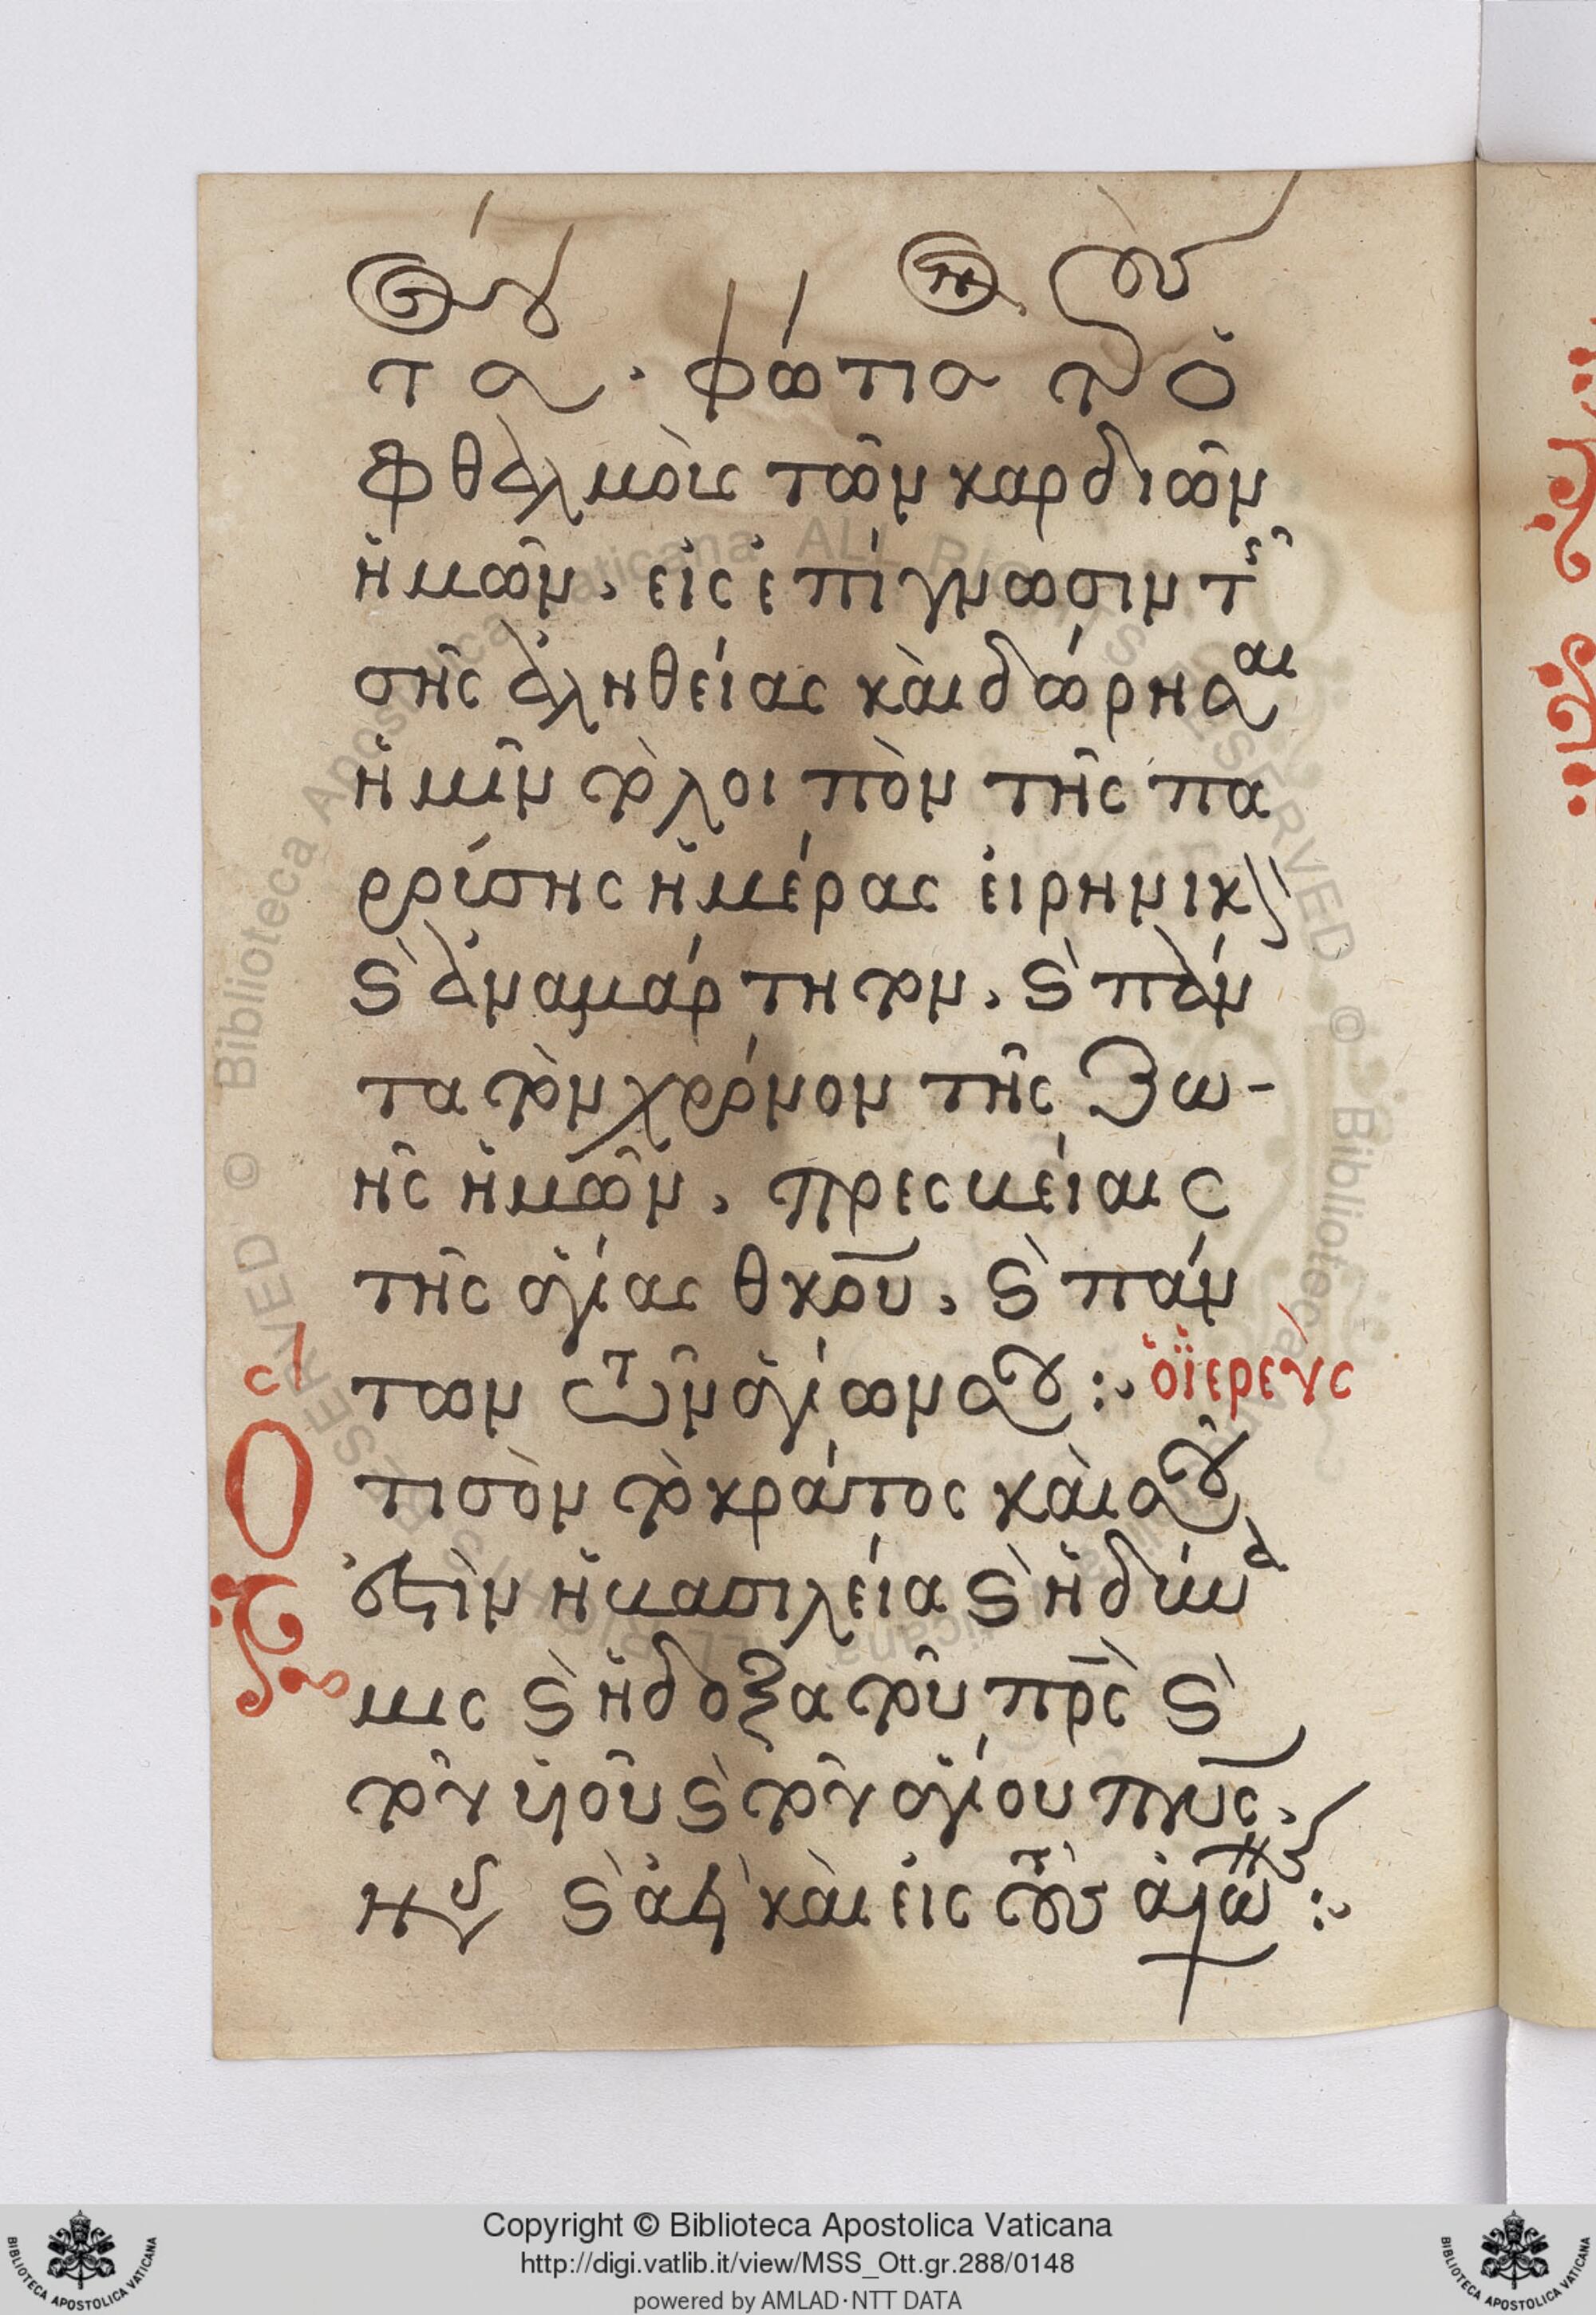 τα. φώτισον τοὺς ὀ
φθαλμοὺς τῶν καρδιῶν
ἡμῶν, εἰς ἐπίγνωσιν τῆς
σῆς ἀληθείας καὶ δώρησαι
ἡμῖν τὸ λοιπὸν τῆς πα
ρούσης ἡμέρας εἰρηνικὸν
καὶ ἀναμάρτητον, καὶ πάν
τα τὸν χρόνον τῆς ζω-
ῆς ἡμῶν, πρεσβείαις
τῆς ἁγίας θκου, καὶ πάν
των τῶν ἁγίων σου: ὁ ἱερεὺς
Ὅτι σὸν τὸ κράτος καὶ σοῦ
ἐστὶν ἡ βασιλεία καὶ ἡ δύνα
μις καὶ ἡ δόξα τοῦ πρς καὶ
τοῦ υἱοῦ καὶ τοῦ ἁγίου πνς,
νῦν καὶ ἀεὶ καὶ εἰς τοὺς αἰῶνας:
ALL RIGHTS RESERVED © Biblioteca Apostolica Vaticana
Copyright © Biblioteca Apostolica Vaticana
http://digi.vatlib.it/view/MSS_Ott.gr.288/0148
powered by AMLAD·NTT DATA
BIBLIOTECA APOSTOLICA VATICANA
BIBLIOTECA APOSTOLICA VATICANA